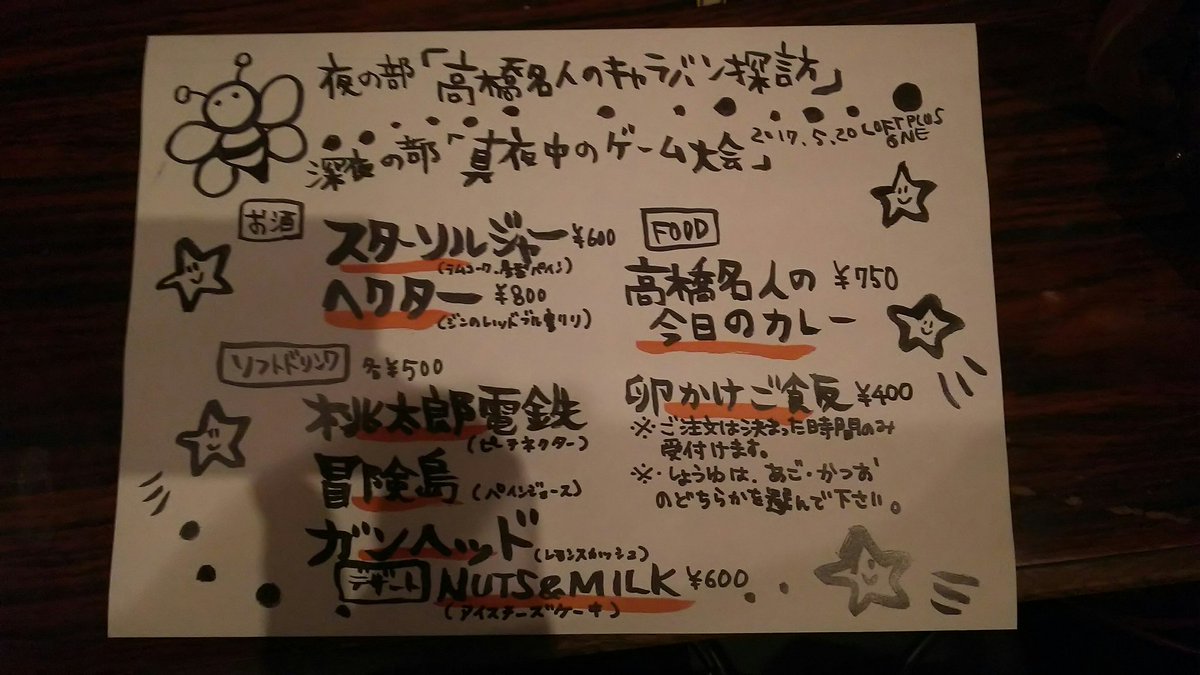 夜の部「高橋名人のキャラバン探訪」
深夜の部「真夜中のゲーム大会」
2017.5.20 LOFT PLUS ONE
お酒
スターソルジャー ¥600
(ラムコーク・パイン)
ヘクター ¥800
(ジンのレッドブル割り)
ソフトドリンク 各¥500
桃太郎電鉄
(ピーチネクター)
冒険島 (パインジュース)
ガンヘッド (レモンスカッシュ)
デザート NUTS&MILK ¥600
(アイスチーズケーキ)
FOOD
高橋名人の ¥750
今日のカレー
卵かけご飯 ¥400
※・ご注文は決まった時間のみ
受付けます。
※・しょうゆは、あご・かつお
のどちらかを選んで下さい。